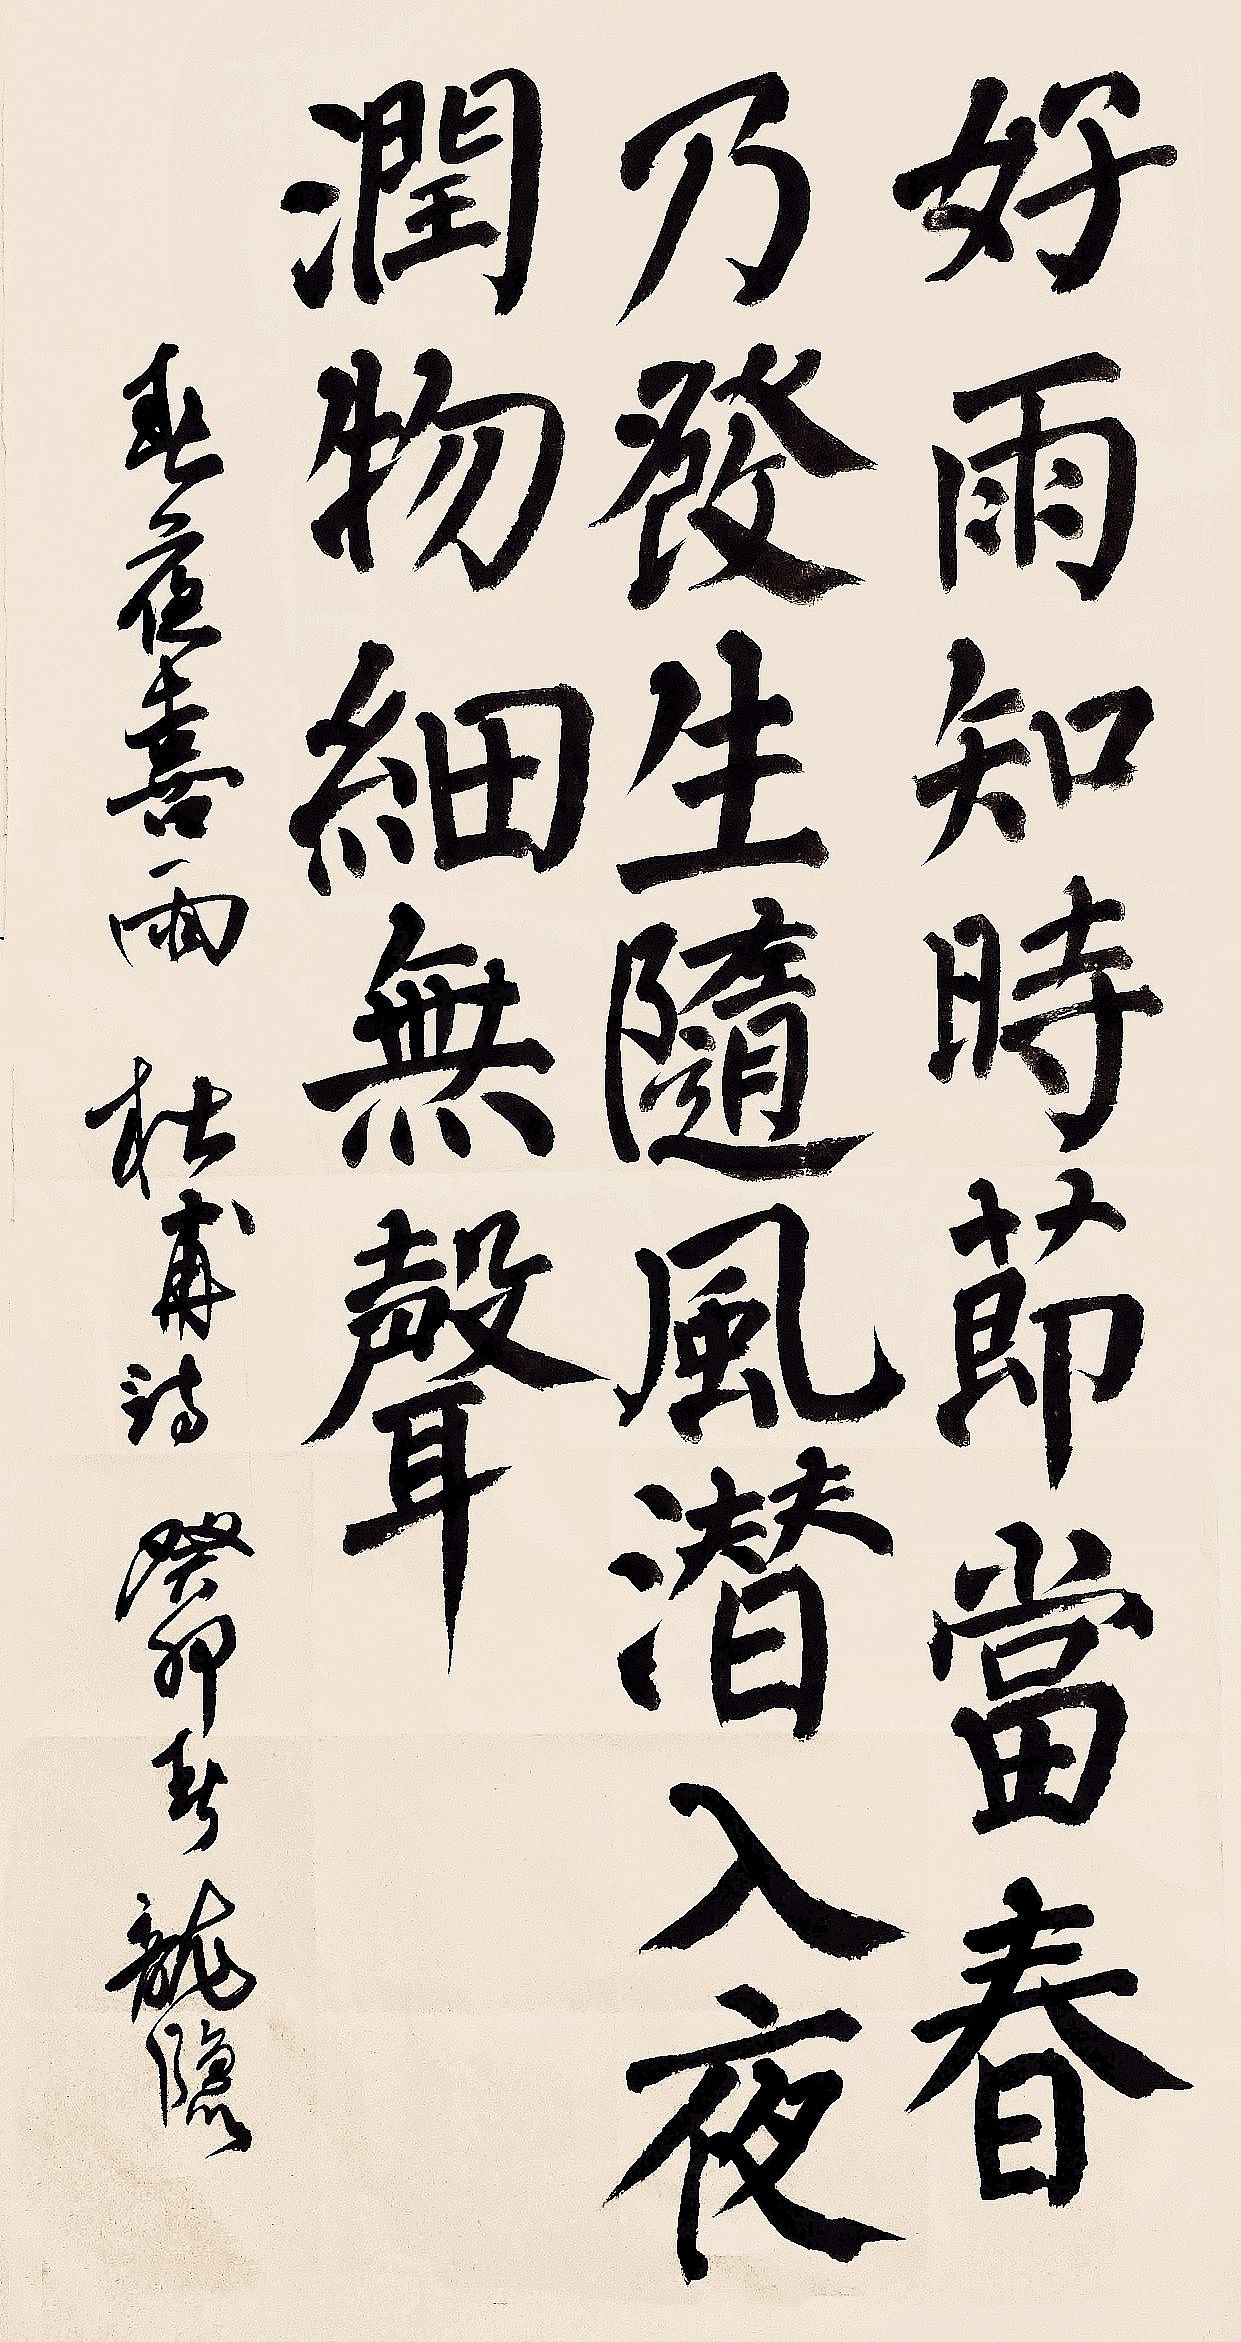 好雨知時節當春
乃發生隨風潛入夜
潤物細無聲
春夜喜雨 杜甫詩 癸卯春 龍隱